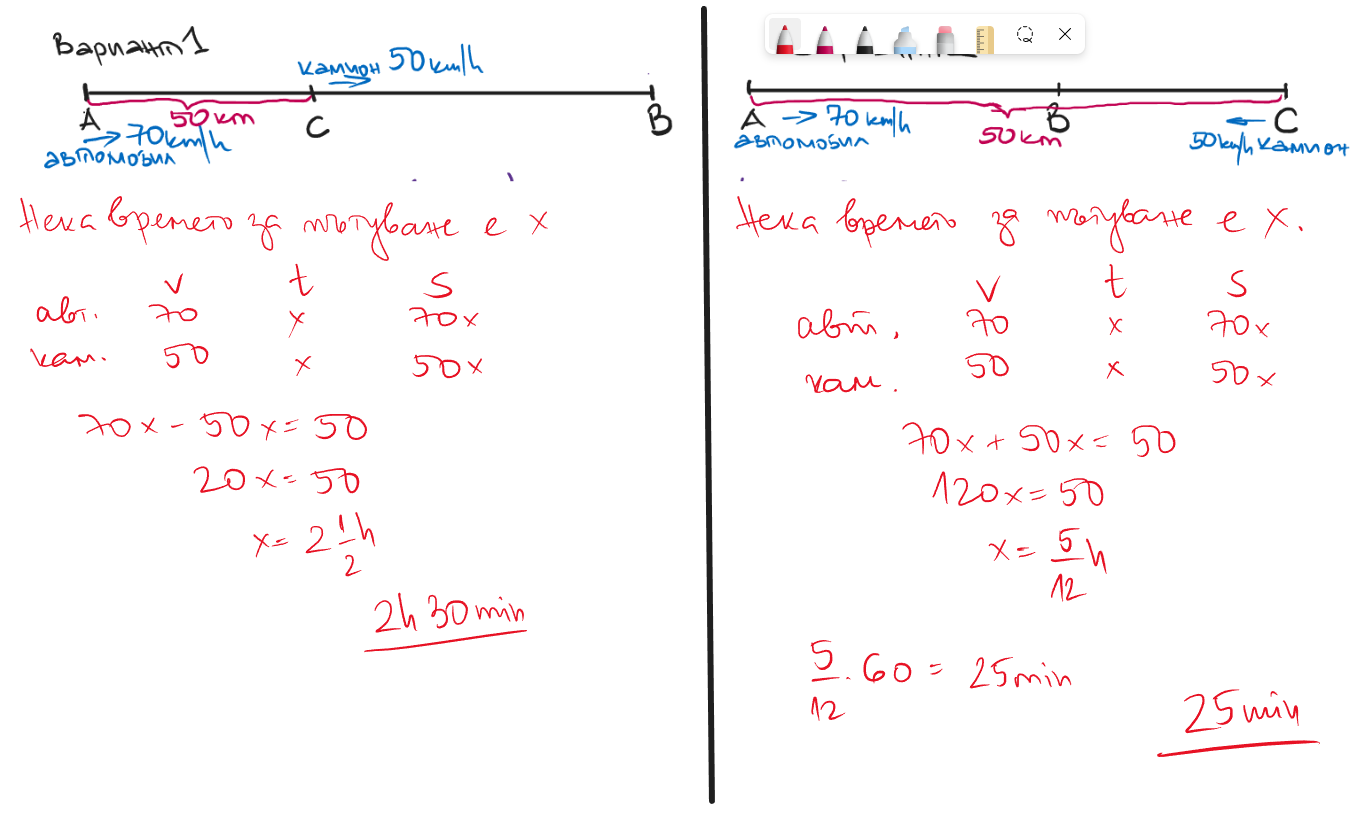 Вариант 1
камион 50 km/h
50 km
A C B
70 km/h
автомобил
Нека времето за пътуване е x
v t s
авт. 70 x 70x
кам. 50 x 50x
70x - 50x = 50
20x = 50
x = 2 1/2 h
2h 30 min
A B C
70 km/h
автомобил
50 km
50 km/h камион
Нека времето за пътуване е x.
v t s
авт. 70 x 70x
кам. 50 x 50x
70x + 50x = 50
120x = 50
x = 5/12 h
5/12 . 60 = 25 min
25 min